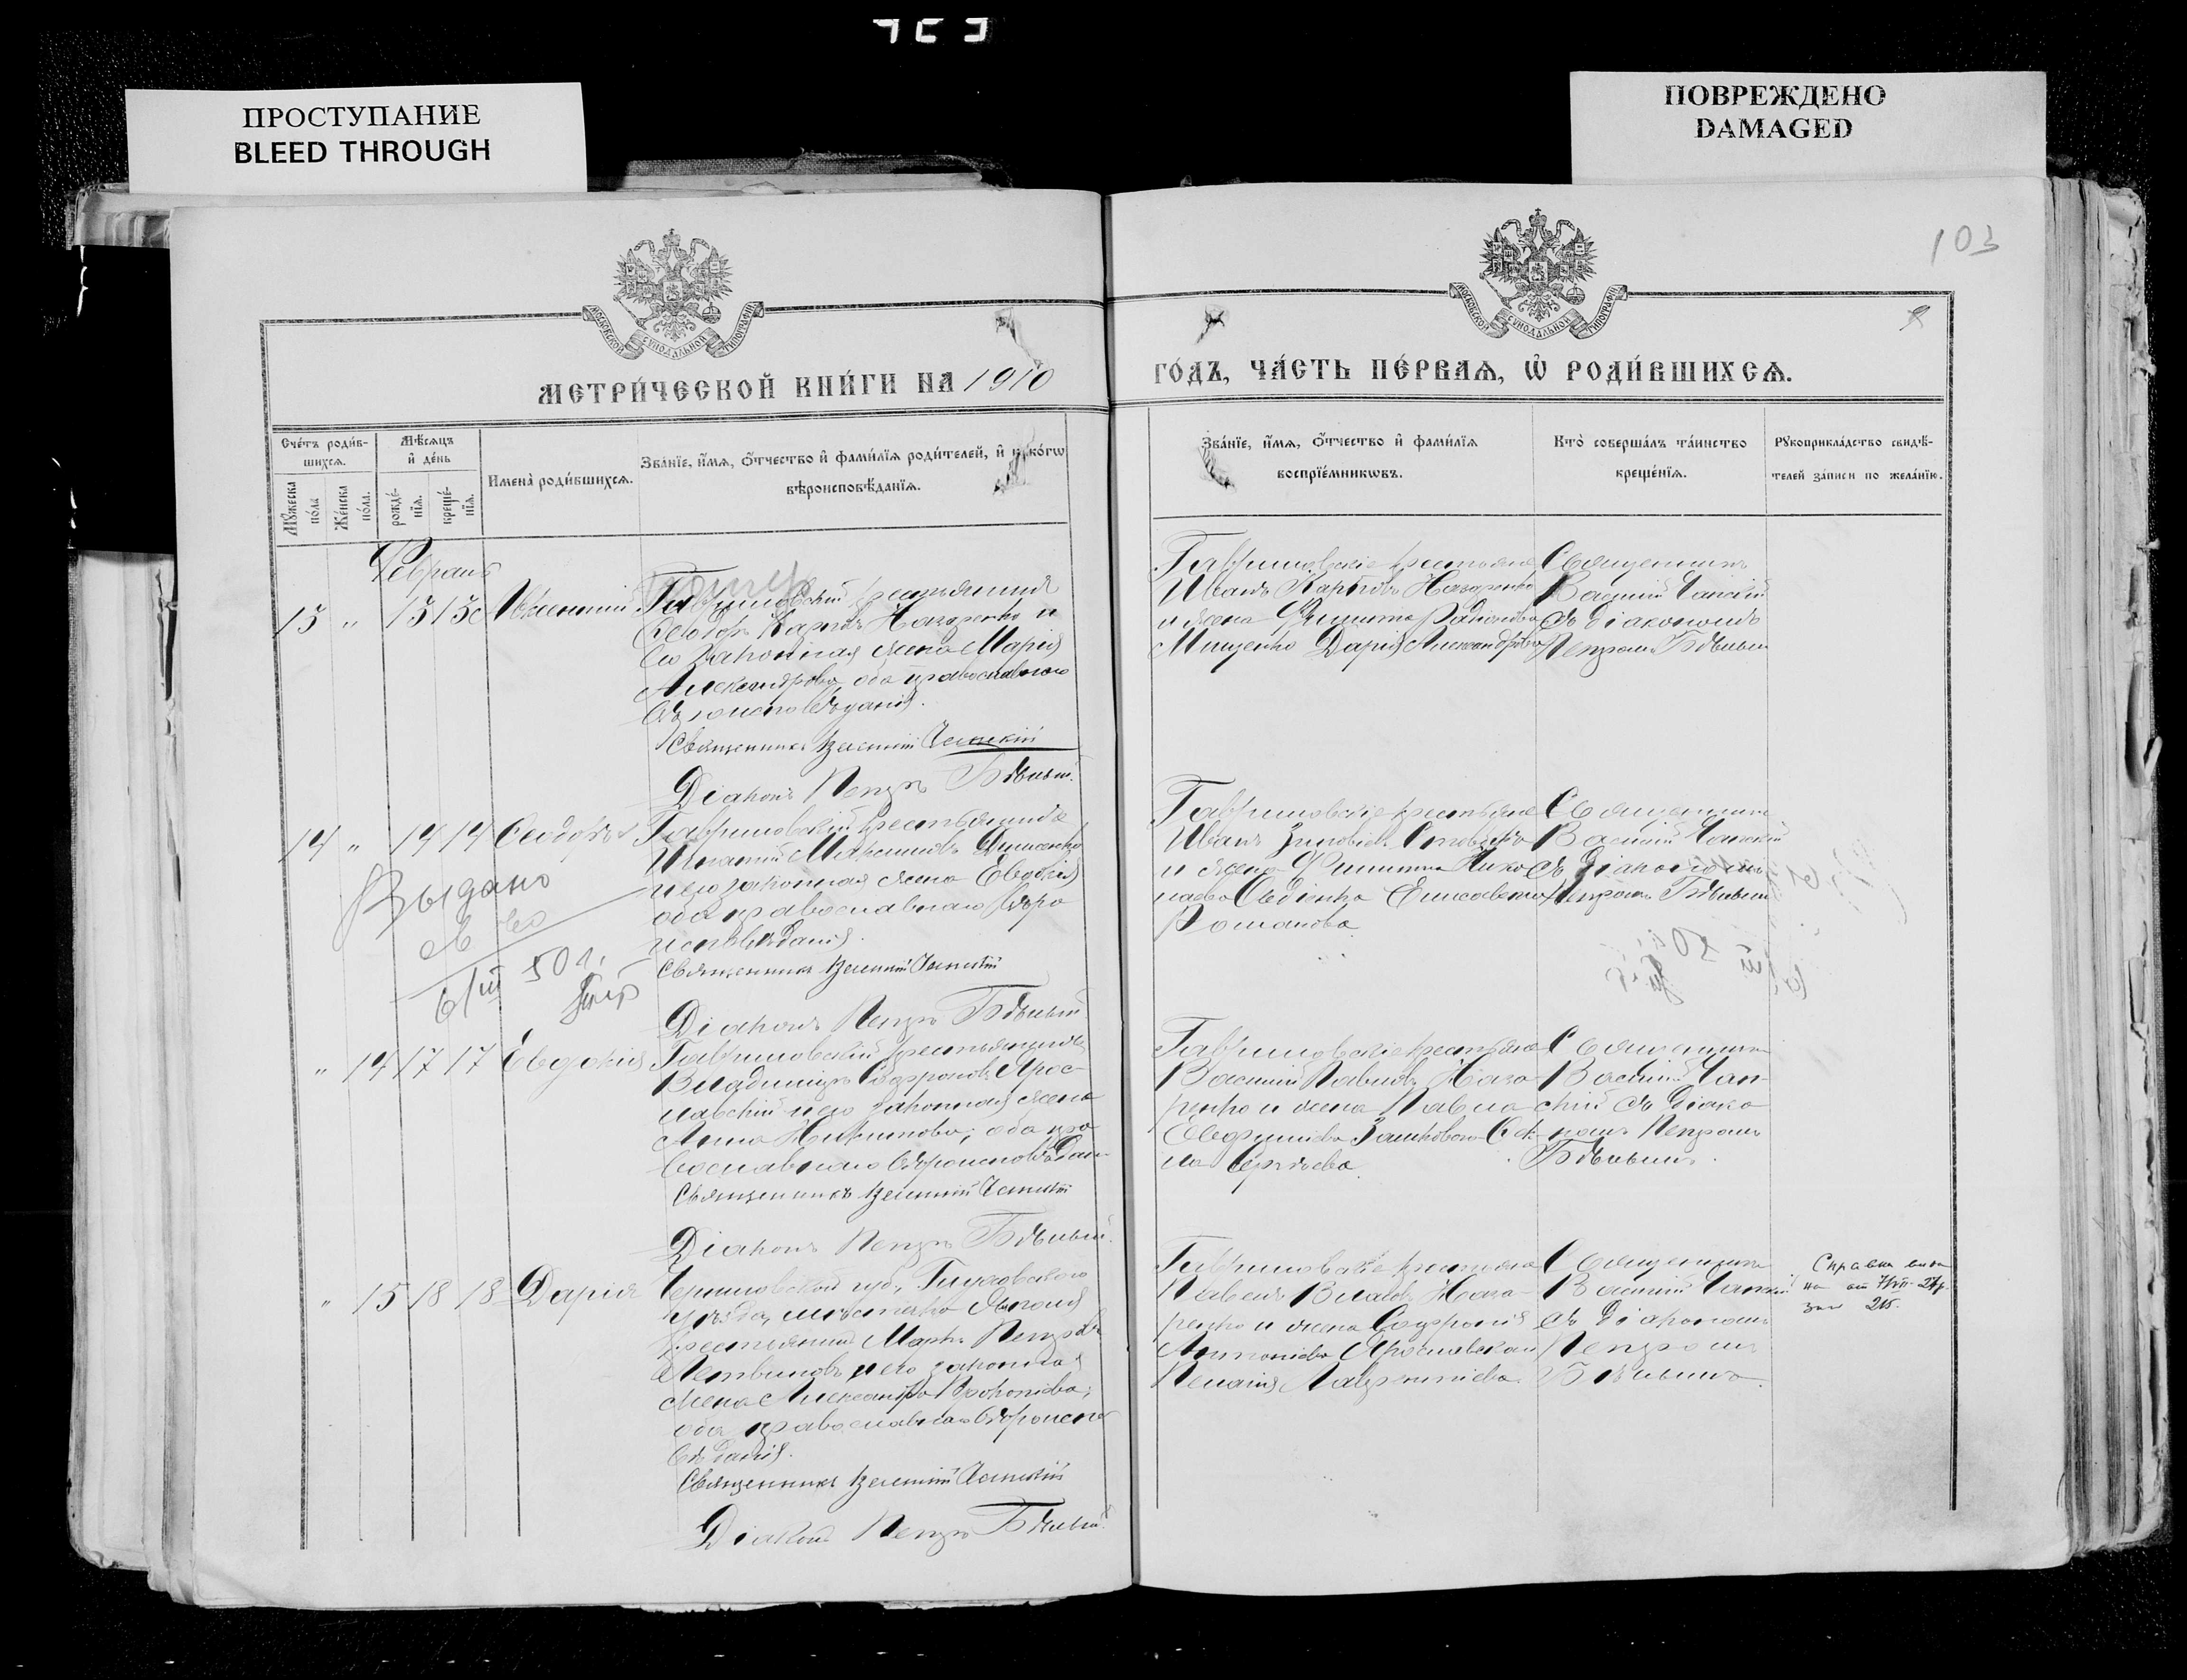 ПРОСТУПАНИЕ
BLEED THROUGH
ПОВРЕЖДЕНО
DAMAGED
103
МОСКОВСКОЙ СѴНОДАЛЬНОЙ ТИПОГРАФІИ
МОСКОВСКОЙ СѴНОДАЛЬНОЙ ТИПОГРАФІИ
МЕТРИ́ЧЕСКОЙ КНИ́ГИ НА 1910
ГО́ДЪ, ЧА́СТЬ ПЕ́РВАѦ, Ѡ҆ РОДИ́ВШИХСѦ.
Сче́тъ роди́в-
шихсѧ.
Мꙋ́жеска по́ла
Же́нска по́ла.
Мѣ́сѧцъ
и҆ де́нь
рожде́-
нїѧ.
креще́-
нїѧ.
Имена̀ роди́вшихсѧ.
Зва́нїе, и҆́мѧ, ѻ҆́тчество и҆ фами́лїѧ роди́телей, и҆ како́гѡ
вѣроисповѣ́данїѧ.
Зва́нїе, и҆́мѧ, ѻ҆́тчество и҆ фами́лїѧ
воспрїе́мникѡвъ.
Кто̀ соверша́лъ та́инство
креще́нїѧ.
Рꙋкоприкла́дство свидѣ́-
телей за́писи по жела́нїю.
Февраль
13 " 13 13
Гавриловскій крестьянинъ
Ѳеодоръ Карповъ Назаренко и
его законная жена Марія
Александрова, оба православнаго
вѣроисповѣданія.
Священникъ Василій Чапскій
Діаконъ Петръ Бѣлый.
Гавриловскіе крестьяне
Иванъ Карповъ Назаренко
и жена Филиппа Родіонова
Мищенко Дарія Александрова
Священникъ
Василій Чапскій
съ діакономъ
Петромъ Бѣлымъ
14 " 14 14 Ѳеодоръ
Гавриловскій крестьянинъ
Игнатій Максимовъ
и его законная жена Евдокія
оба православнаго вѣро
исповѣданія.
Священникъ Василій Чапскій
Діаконъ Петръ Бѣлый.
Выдано
св во
6/III 50 г.
Гавриловскіе крестьяне
Иванъ Зиновіевъ
и жена Филиппа Нико
лаева Овдіенко Елисавета
Романова
Священникъ
Василій Чапскій
съ Діакономъ
Петромъ Бѣлымъ
" 14 17 17 Евдокія
Гавриловскій крестьянинъ
Владиміръ Софроновъ Ярос-
лавскій и его законная жена
Анна Никитова; оба пра
вославнаго вѣроисповѣдан
Священникъ Василій Чапскій
Діаконъ Петръ Бѣлый.
Гавриловскіе крестьяне
Василій Павловъ Наза-
ренко и жена Павла
Ѳек-
ла Сергѣева
Священникъ
Василій Чап-
скій съ діако
номъ Петромъ
Бѣлымъ.
" 15 18 18 Дарія
Черниговской губ., Глуховского
уѣзда, мѣстечка Ямполя
крестьянинъ Маркъ Петровъ
Литвиновъ и его законная
жена Александра Прокопіева;
оба православнаго вѣроиспо
вѣданія.
Священникъ Василій Чапскій
Діаконъ Петръ Бѣлый
Гавриловскіе крестьяне
Павелъ Назa-
ренко и жена Софронія
Антоніева Ярославская
Пелагія Лаврентіева.
Священникъ
Василій Чапскій
съ Діакономъ
Петромъ
Бѣлымъ.
Справка выда
на от
за № 215.